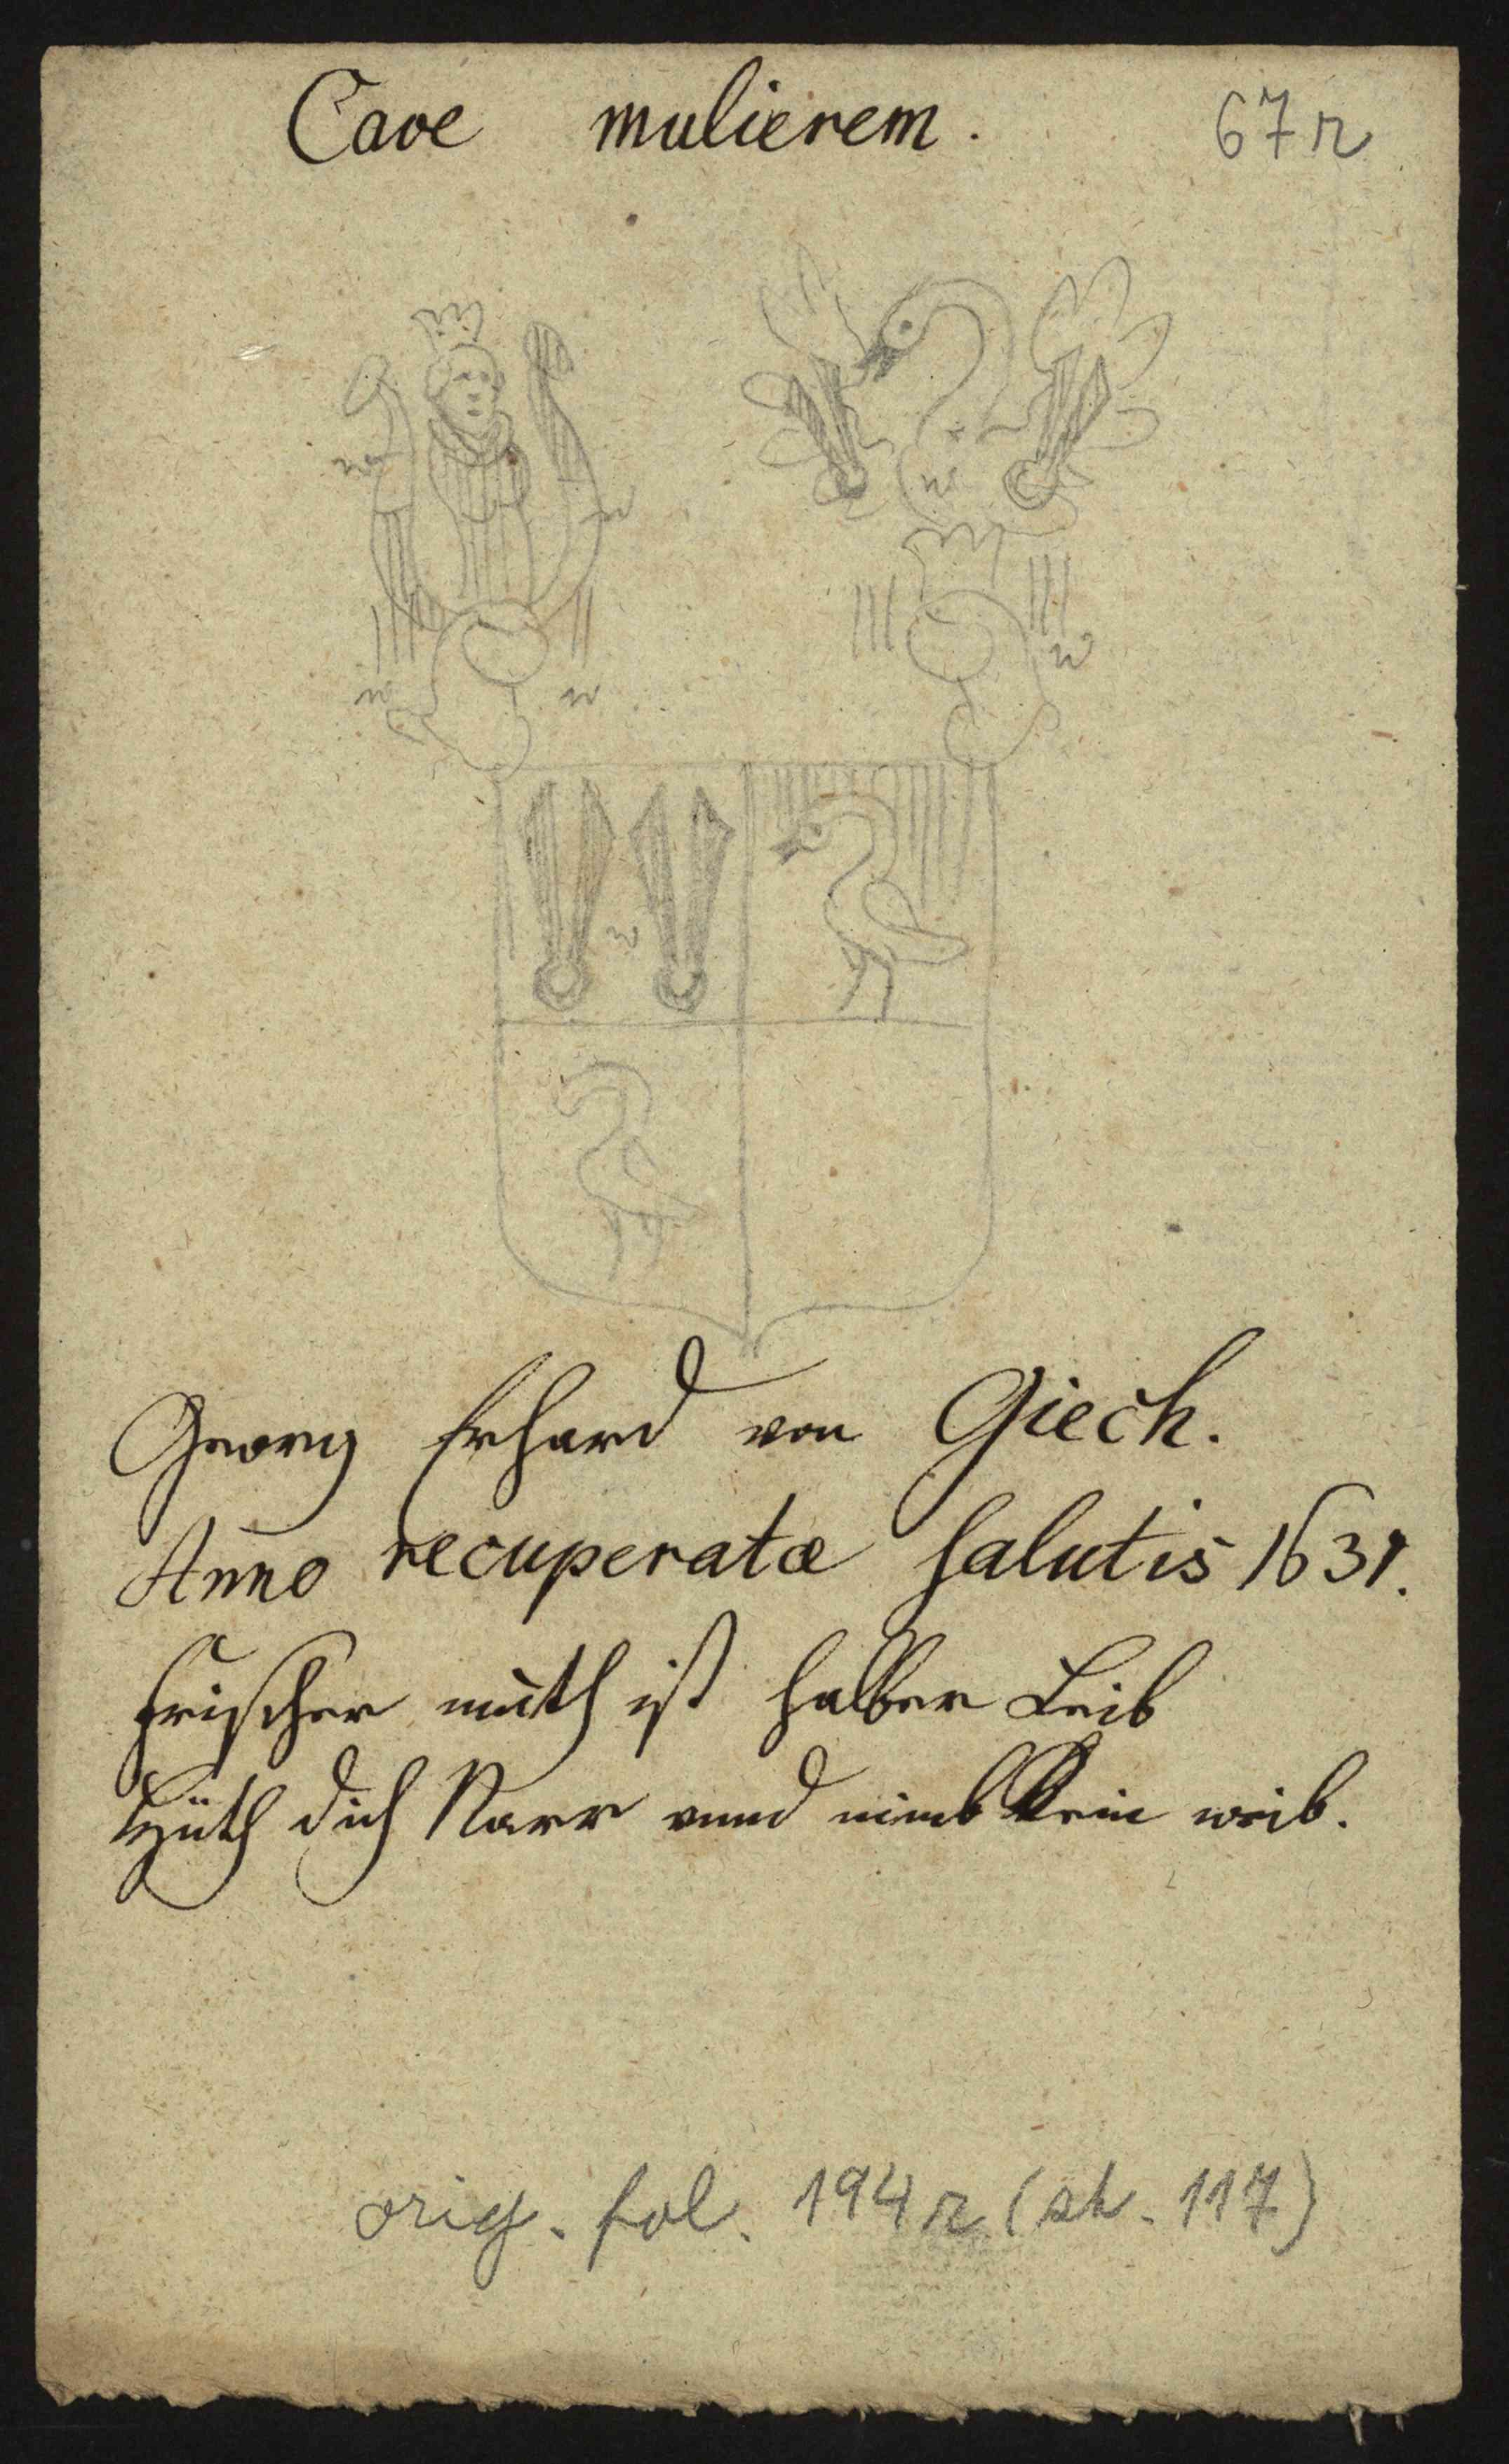 Cave mulierem.
67r
w
w
w
w
w
w
w
Georg Erhard von Giech.
Anno recuperatæ salutis 1631.
Frischer muth ist halber Leib
Hüth dich Narr vnnd nimb kein weib.
orig. fol. 194r (sk. 117)